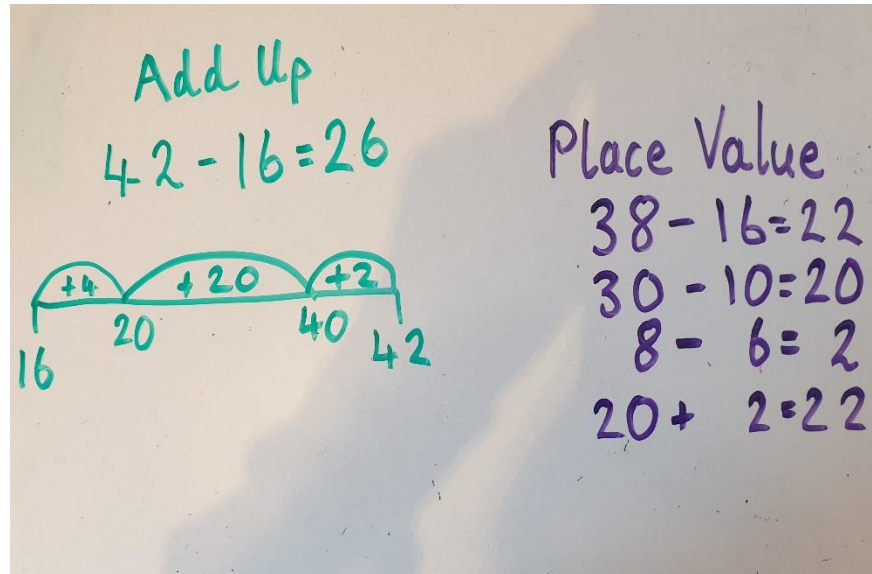 Add Up
42 - 16 = 26
+4 +20 +2
16 20 40 42
Place Value
38 - 16 = 22
30 - 10 = 20
8 - 6 = 2
20 + 2 = 22